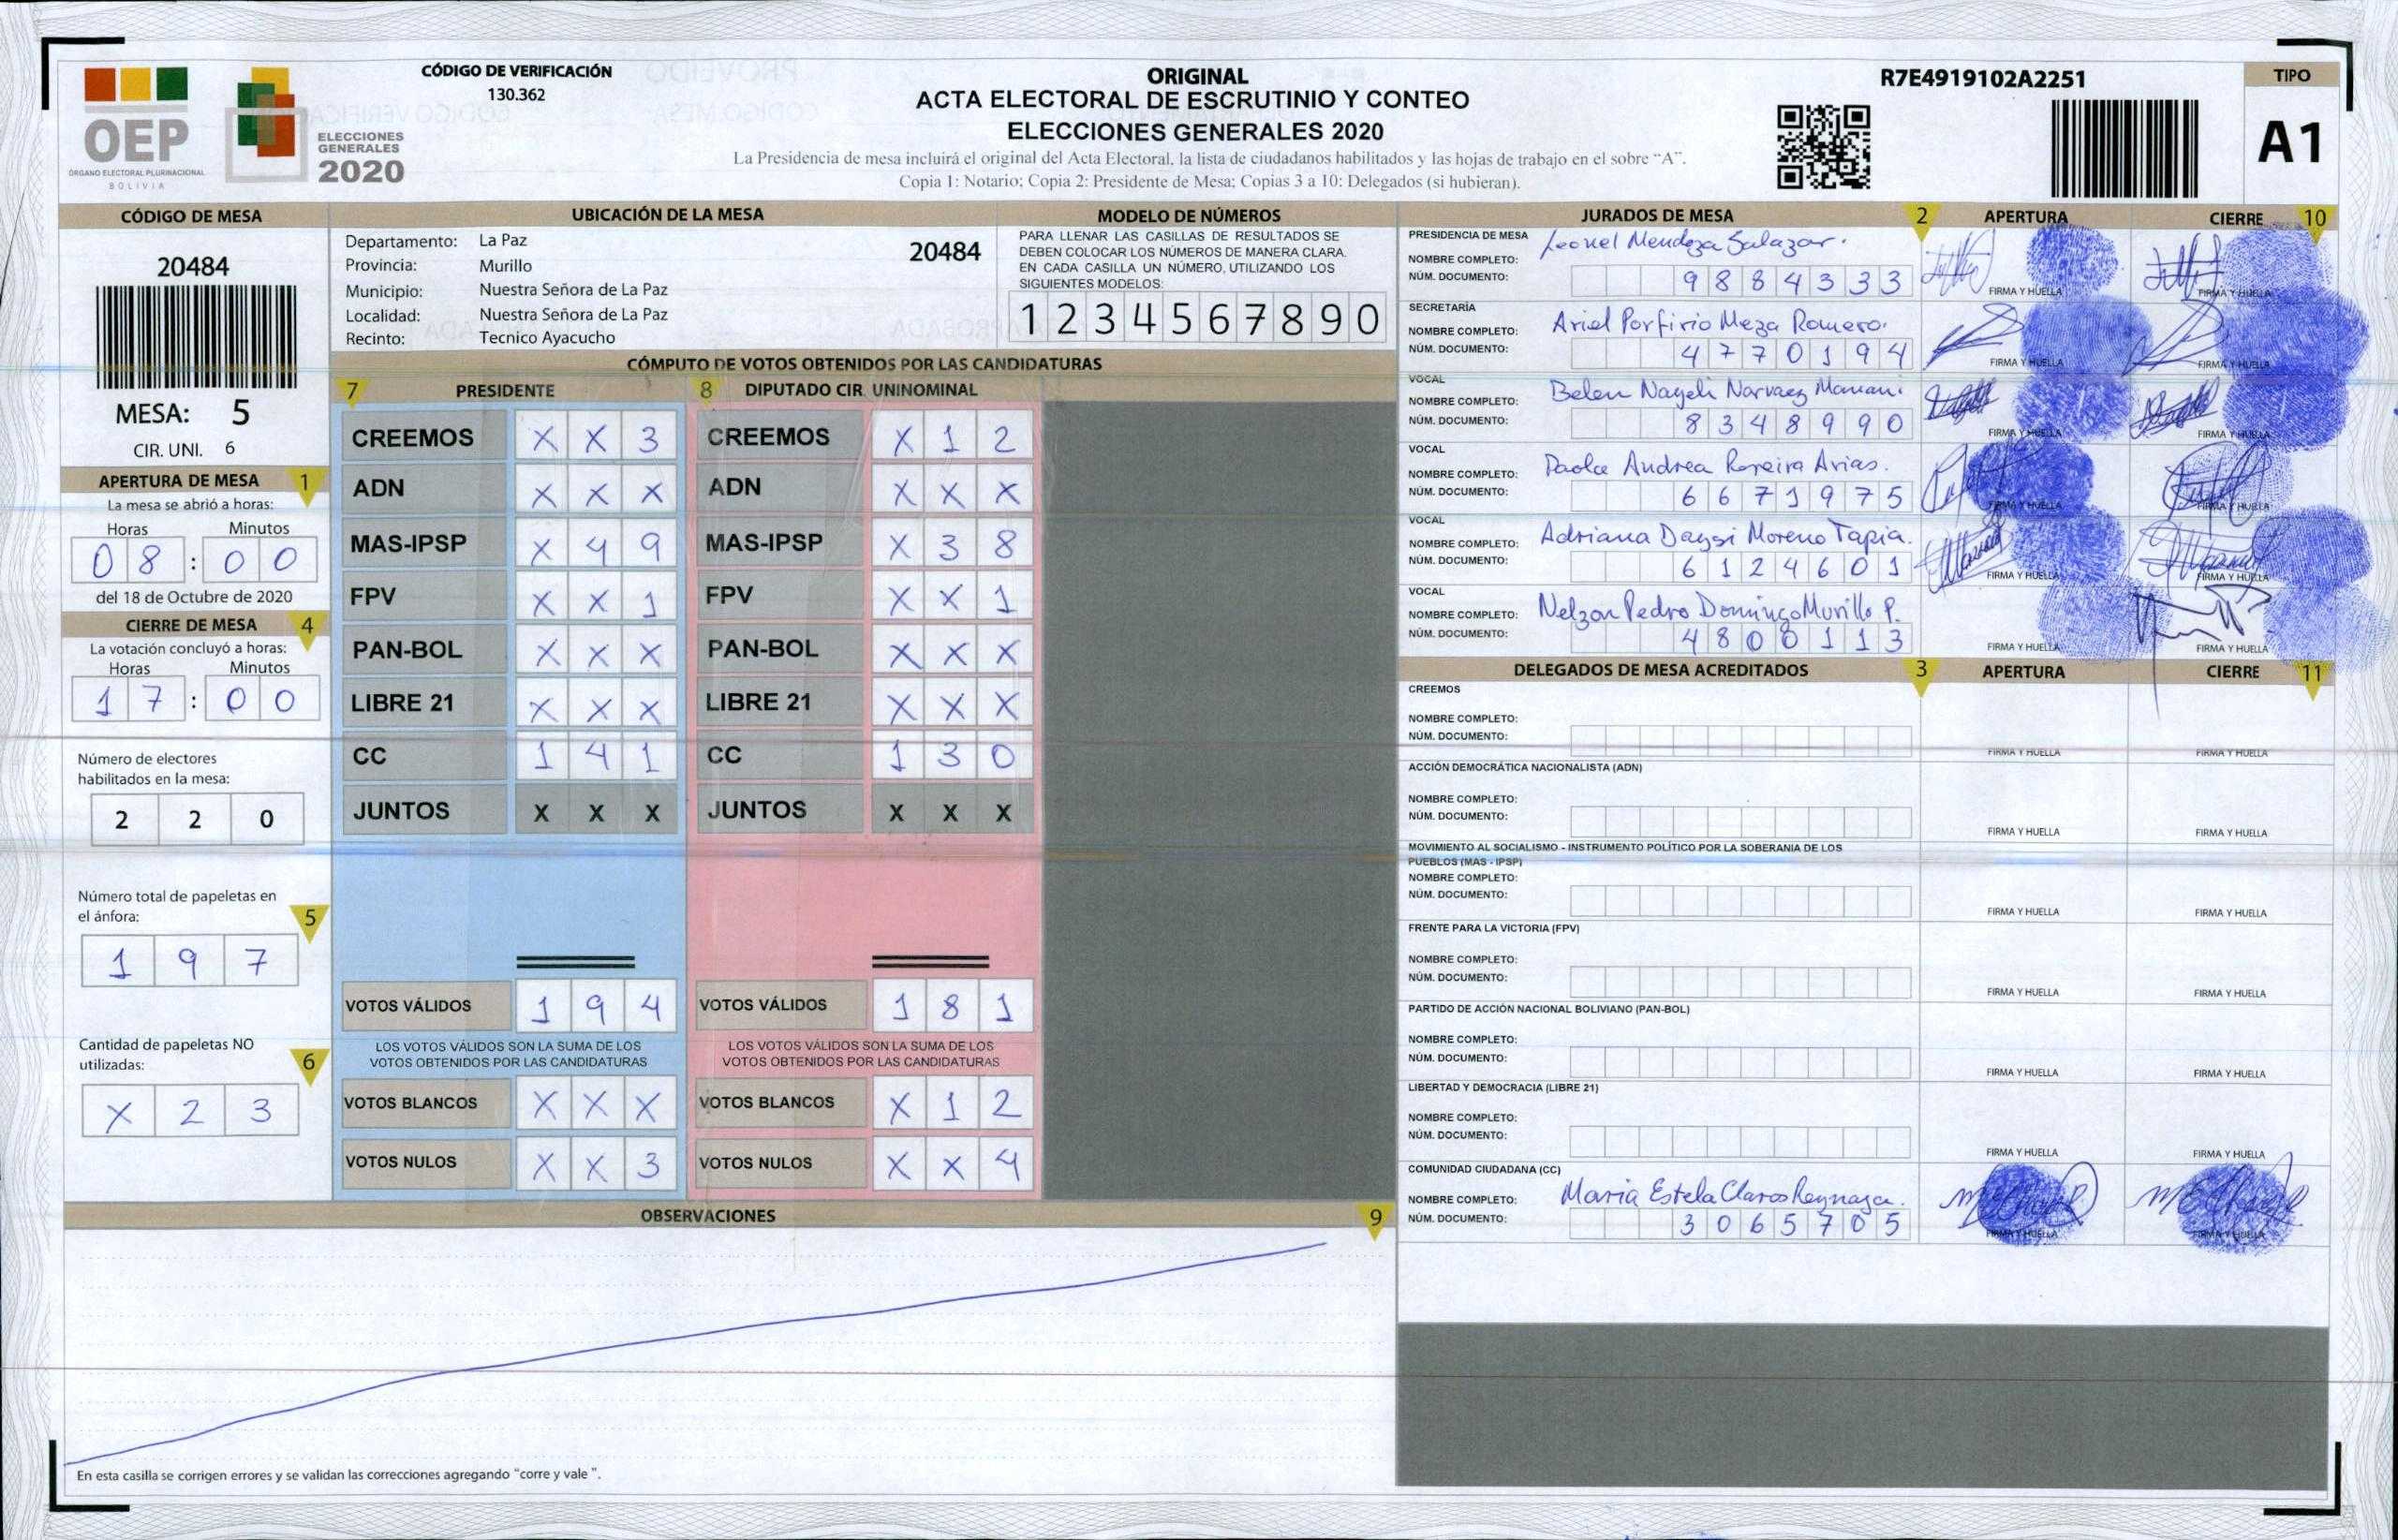 OEP
ÓRGANO ELECTORAL PLURINACIONAL
BOLIVIA
ELECCIONES
GENERALES
2020
CÓDIGO DE VERIFICACIÓN
130.362
ORIGINAL
ACTA ELECTORAL DE ESCRUTINIO Y CONTEO
ELECCIONES GENERALES 2020
La Presidencia de mesa incluirá el original del Acta Electoral, la lista de ciudadanos habilitados y las hojas de trabajo en el sobre "A".
Copia 1: Notario; Copia 2: Presidente de Mesa; Copias 3 a 10: Delegados (si hubieran).
R7E4919102A2251
TIPO
A1
CÓDIGO DE MESA
20484
MESA: 5
CIR. UNI. 6
APERTURA DE MESA 1
La mesa se abrió a horas:
Horas Minutos
0 8 : 0 0
del 18 de Octubre de 2020
CIERRE DE MESA 4
La votación concluyó a horas:
Horas Minutos
1 7 : 0 0
Número de electores
habilitados en la mesa:
2 2 0
Número total de papeletas en
el ánfora: 5
1 9 7
Cantidad de papeletas NO
utilizadas: 6
X 2 3
UBICACIÓN DE LA MESA
Departamento: La Paz 20484
Provincia: Murillo
Municipio: Nuestra Señora de La Paz
Localidad: Nuestra Señora de La Paz
Recinto: Tecnico Ayacucho
MODELO DE NÚMEROS
PARA LLENAR LAS CASILLAS DE RESULTADOS SE
DEBEN COLOCAR LOS NÚMEROS DE MANERA CLARA.
EN CADA CASILLA UN NÚMERO, UTILIZANDO LOS
SIGUIENTES MODELOS:
1 2 3 4 5 6 7 8 9 0
CÓMPUTO DE VOTOS OBTENIDOS POR LAS CANDIDATURAS
7 PRESIDENTE 8 DIPUTADO CIR. UNINOMINAL
CREEMOS X X 3 CREEMOS X 1 2
ADN X X X ADN X X X
MAS-IPSP X 4 9 MAS-IPSP X 3 8
FPV X X 1 FPV X X 1
PAN-BOL X X X PAN-BOL X X X
LIBRE 21 X X X LIBRE 21 X X X
CC 1 4 1 CC 1 3 0
JUNTOS X X X JUNTOS X X X
VOTOS VÁLIDOS 1 9 4 VOTOS VÁLIDOS 1 8 1
LOS VOTOS VÁLIDOS SON LA SUMA DE LOS LOS VOTOS VÁLIDOS SON LA SUMA DE LOS
VOTOS OBTENIDOS POR LAS CANDIDATURAS VOTOS OBTENIDOS POR LAS CANDIDATURAS
VOTOS BLANCOS X X X VOTOS BLANCOS X 1 2
VOTOS NULOS X X 3 VOTOS NULOS X X 4
OBSERVACIONES 9
En esta casilla se corrigen errores y se validan las correcciones agregando "corre y vale ".
JURADOS DE MESA 2 APERTURA CIERRE 10
PRESIDENCIA DE MESA
NOMBRE COMPLETO: Leonel Mendoza Salazar.
NÚM. DOCUMENTO: 9 8 8 4 3 3 3
FIRMA Y HUELLA FIRMA Y HUELLA
SECRETARÍA
NOMBRE COMPLETO: Ariel Porfirio Meza Romero.
NÚM. DOCUMENTO: 4 7 7 0 1 9 4
FIRMA Y HUELLA FIRMA Y HUELLA
VOCAL
NOMBRE COMPLETO: Belen Nayeli Narvaez Mamani
NÚM. DOCUMENTO: 8 3 4 8 9 9 0
FIRMA Y HUELLA FIRMA Y HUELLA
VOCAL
NOMBRE COMPLETO: Paola Andrea Pereira Arias.
NÚM. DOCUMENTO: 6 6 7 1 9 7 5
FIRMA Y HUELLA FIRMA Y HUELLA
VOCAL
NOMBRE COMPLETO: Adriana Daysi Moreno Tapia.
NÚM. DOCUMENTO: 6 1 2 4 6 0 1
FIRMA Y HUELLA FIRMA Y HUELLA
VOCAL
NOMBRE COMPLETO: Nelzon Pedro Domingo Murillo P.
NÚM. DOCUMENTO: 4 8 0 0 1 1 3
FIRMA Y HUELLA FIRMA Y HUELLA
DELEGADOS DE MESA ACREDITADOS 3 APERTURA CIERRE 11
CREEMOS
NOMBRE COMPLETO:
NÚM. DOCUMENTO:
FIRMA Y HUELLA FIRMA Y HUELLA
ACCIÓN DEMOCRÁTICA NACIONALISTA (ADN)
NOMBRE COMPLETO:
NÚM. DOCUMENTO:
FIRMA Y HUELLA FIRMA Y HUELLA
MOVIMIENTO AL SOCIALISMO - INSTRUMENTO POLÍTICO POR LA SOBERANIA DE LOS
PUEBLOS (MAS - IPSP)
NOMBRE COMPLETO:
NÚM. DOCUMENTO:
FIRMA Y HUELLA FIRMA Y HUELLA
FRENTE PARA LA VICTORIA (FPV)
NOMBRE COMPLETO:
NÚM. DOCUMENTO:
FIRMA Y HUELLA FIRMA Y HUELLA
PARTIDO DE ACCIÓN NACIONAL BOLIVIANO (PAN-BOL)
NOMBRE COMPLETO:
NÚM. DOCUMENTO:
FIRMA Y HUELLA FIRMA Y HUELLA
LIBERTAD Y DEMOCRACIA (LIBRE 21)
NOMBRE COMPLETO:
NÚM. DOCUMENTO:
FIRMA Y HUELLA FIRMA Y HUELLA
COMUNIDAD CIUDADANA (CC)
NOMBRE COMPLETO: Maria Estela Claros Reynaga.
NÚM. DOCUMENTO: 3 0 6 5 7 0 5
FIRMA Y HUELLA FIRMA Y HUELLA